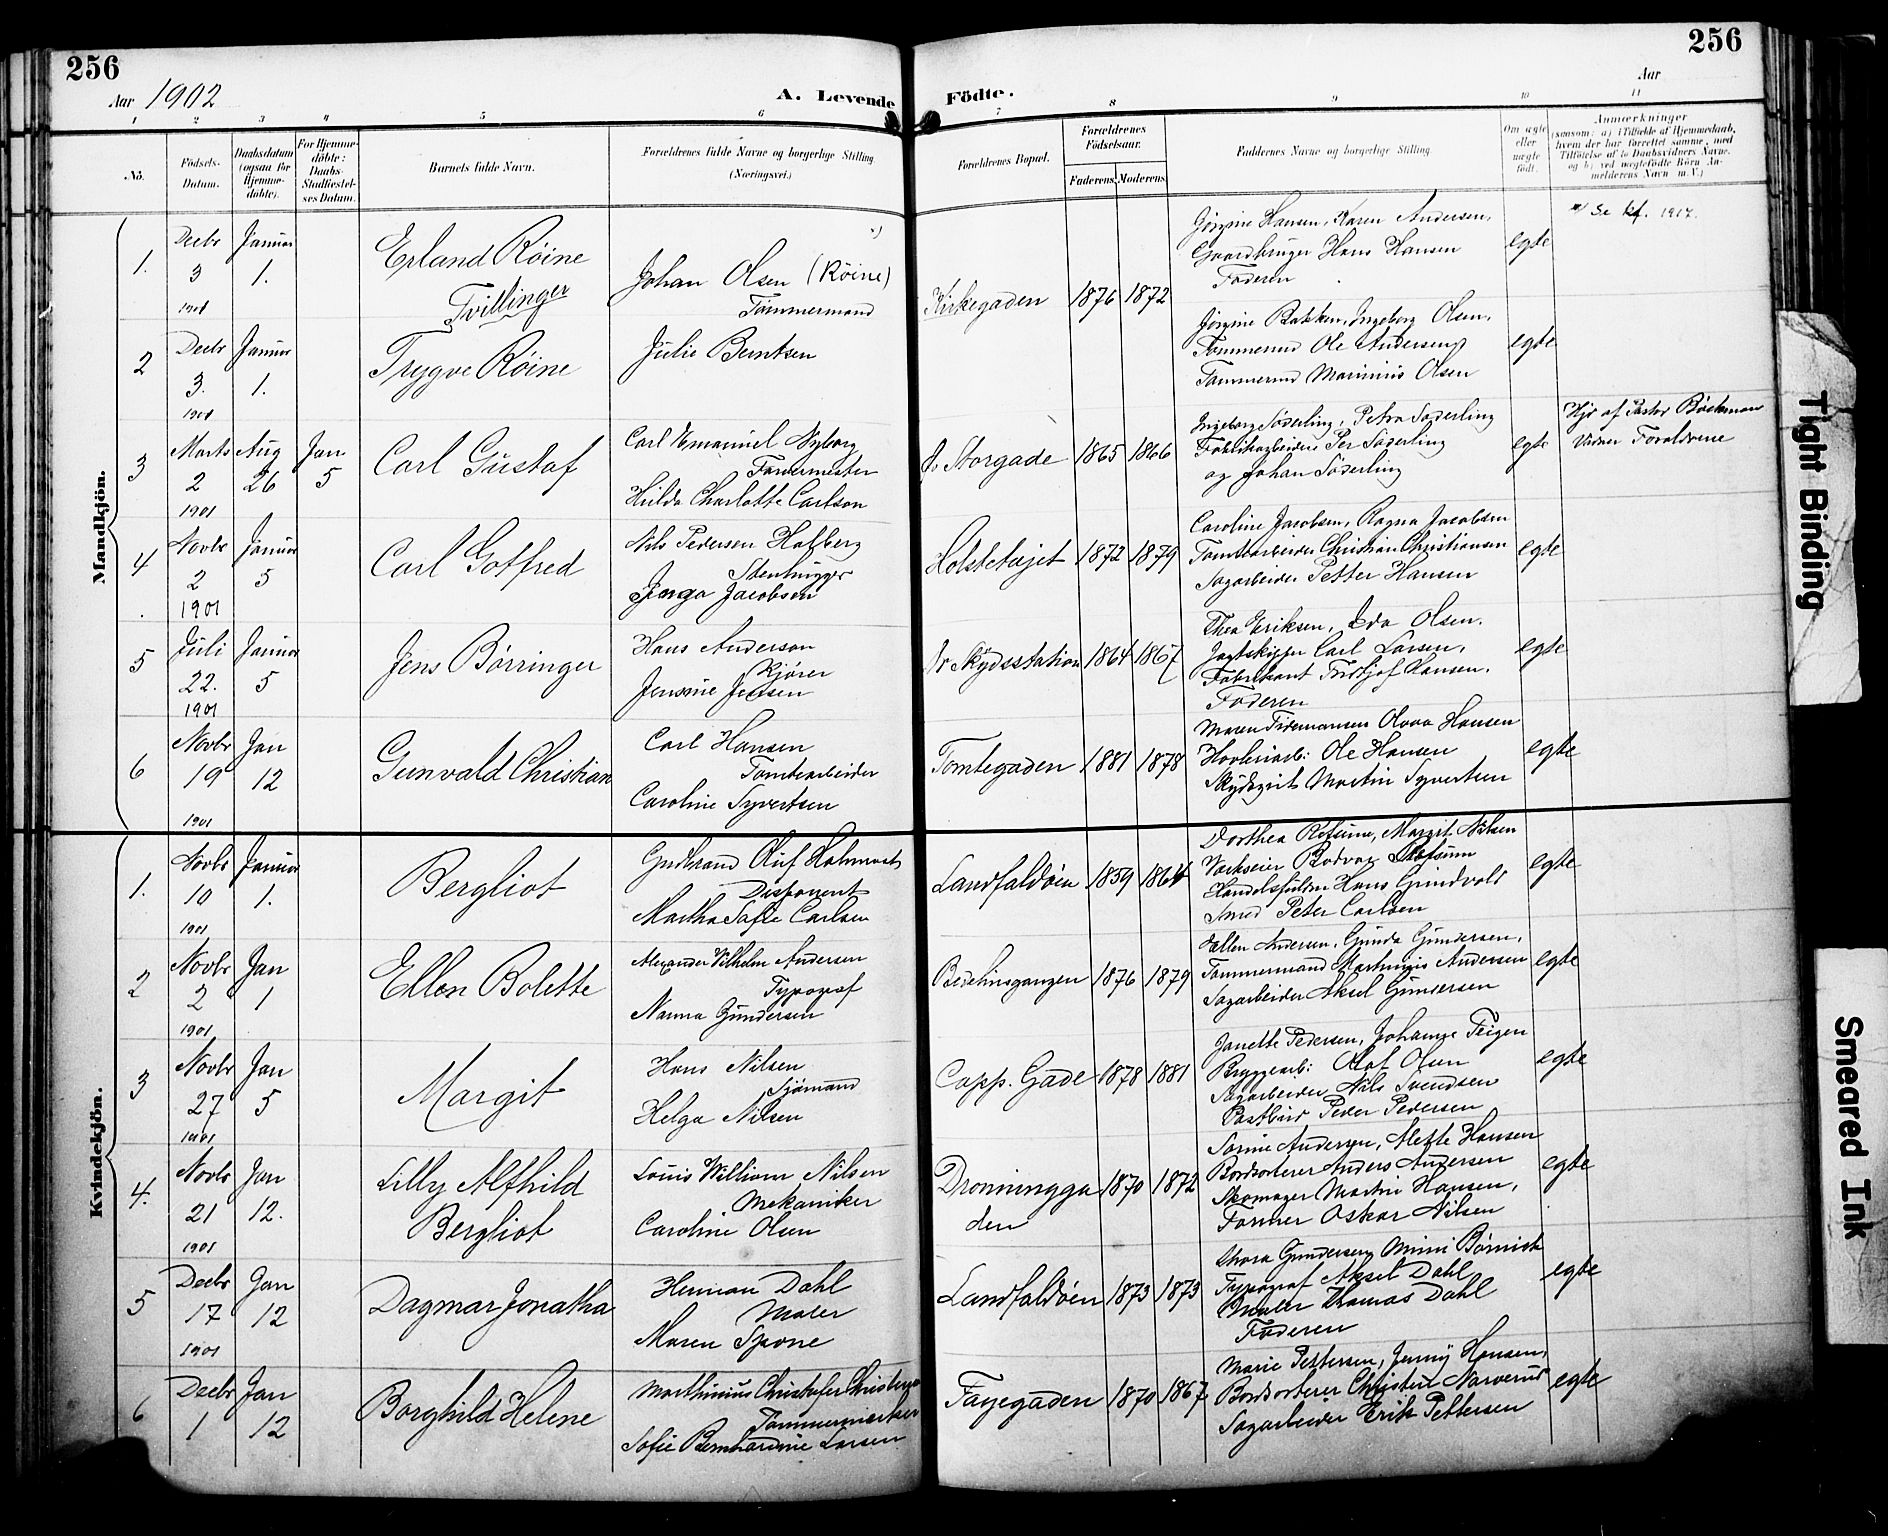 256
256
Aar 1902
A. Levende
Födte.
Aar
1 2 3 4 5 6 7 8 9 10 11
No.
Födsels-
Datum.
Daabsdatum
(ogsaa for
Hjemme-
döbte).
For Hjemme-
döbte:
Daabs-
Stadfæstel-
ses Datum.
Barnets fulde Navn.
Forældrenes fulde Navne og borgerlige Stilling
(Næringsvei.)
Forældrenes Bopæl.
Forældrenes
Födselsaar.
Faderens.
Moderens.
Faddernes Navne og borgerlig Stilling.
Om ægte
eller
uægte
født.
Anmærkninger
(saasom: a) i Tilfælde af Hjemmedaab,
hvem der har forrettet samme, med
Tilföielse af to Daabsvidners Navne,
og b) ved uægtefödte Börn An-
melderens Navn m.V.)
Mandkjön.
1.
Decbr
3
1901
Januar
1.
Erland Röine
Tvillinger
Johan Olsen (Röine)
Tømmermand
Kirkegaden
1876
1872
Jørgine Hansen, Karen Andersen,
Gaardbruger Hans Hansen
Faderen
egte
Se kf. 1917.
2
Decbr
3.
1901
Januar
1.
Trygve Röine
Julie Berntsen
Jørgine Bakken, Ingeborg Olsen,
Tømmermd Ole Andersen
Tømmermd Marinius Olsen
egte
3
Marts
2
1901
Aug
26
Jan
5
Carl Gustaf
Carl Emanuel Nyborg
Farvermester
Hulda Charlotte Carlson
Storgade
1865
1866
Ingeborg Søderling, Petra Søderling
Fabrikarbeider Per Søderling
og Johan Søderling
egte
Hjd af Pastor Böckman
Vidner Forældrene
4
Novbr
2
1901
Januar
5
Carl Gotfred
Nils Pedersen Hafberg
Stenhugger
Jenga Jacobsen
1872
1879
Caroline Jacobsen, Ragna Jacobsen
Tomtearbeider Christian Christiansen
Sagarbeider Petter Hansen
egte
5
Juli
22.
1901
Januar
5
Jens Börringer
Hans Anderson
Kjører
Jensine Jensen
Skydsstation
1864
1867
Thea Eriksen, Ida Olsen,
Jagtskipper Carl Larsen,
Fabrikant Fridtjof Hansen.
Faderen
egte
6
Novbr
19
1901
Jan
12
Gunvald Christian
Carl Hansen
Tomtearbeider
Caroline Syvertsen
Tomtegaden
1881
1878
Maren Tidemansen Olava Hansen
Høvleriarb: Ole Hansen
Skydsgut Martin Syvertsen
egte
Kvindekjön.
1.
Novbr
10
1901
Januar
1.
Bergliot
Gudbrand Oluf
Disponent
Martha Sofie Carlsen
Landfaldöen
1859
1864
Dorthea Refsum, Margit Nilsen
Værkseier Bodvar Refsum
Hans Grindvold
Smed Peter Carlsen
egte
2
Novbr
2
1901
Jan
1
Ellen Bolette
Alexander Vilhelm Andersen
Typograf
Nanna Gundersen
1876
1879
Ellen Andersen, Gunda Gundersen,
Tømmermand Martinius Andersen
Sagarbeider Aksel Gundersen
egte
3
Novbr
27
1901
Jan
5
Margit
Hans Nilsen
Sjömand
Helga Nilsen
Capp. Gade
1878
1881
Janette Pedersen, Johanne Teigen
Bryggearb: Olaf Olsen
Sagarbeider Nils Svendsen
Postbud Peder Pedersen
egte
4.
Novbr
21
1901
Jan
12.
Lilly Alfhild
Bergliot
Louis William Nilsen
Mekaniker
Caroline Olsen
Dronningga
den
1870
1872
Sorine Andersen, Mette Hansen
Bordsorterer Anders Andersen
Skomager Martin Hansen,
Former Oskar Nilsen
egte
5
Decbr
17
1901
Jan
12
Dagmar Jonatha
Herman Dahl
Maler
Maren Spone
Landfaldöen
1873
1873
Thora Gundersen, Mimi Børnich
Typograf Aksel Dahl
Maler Thomas Dahl
Faderen
egte
6
Decbr
1
Jan
12
Borghild Helene
Marthinius Christofer
Sofie Bernhardine Larsen
Fayegaden
1870
1867
Marie Pettersen, Jenny Hansen,
Bordsorterer Christen Narverud
Sagarbeider Erik Pettersen
egte
Tight Binding
Smeared Ink